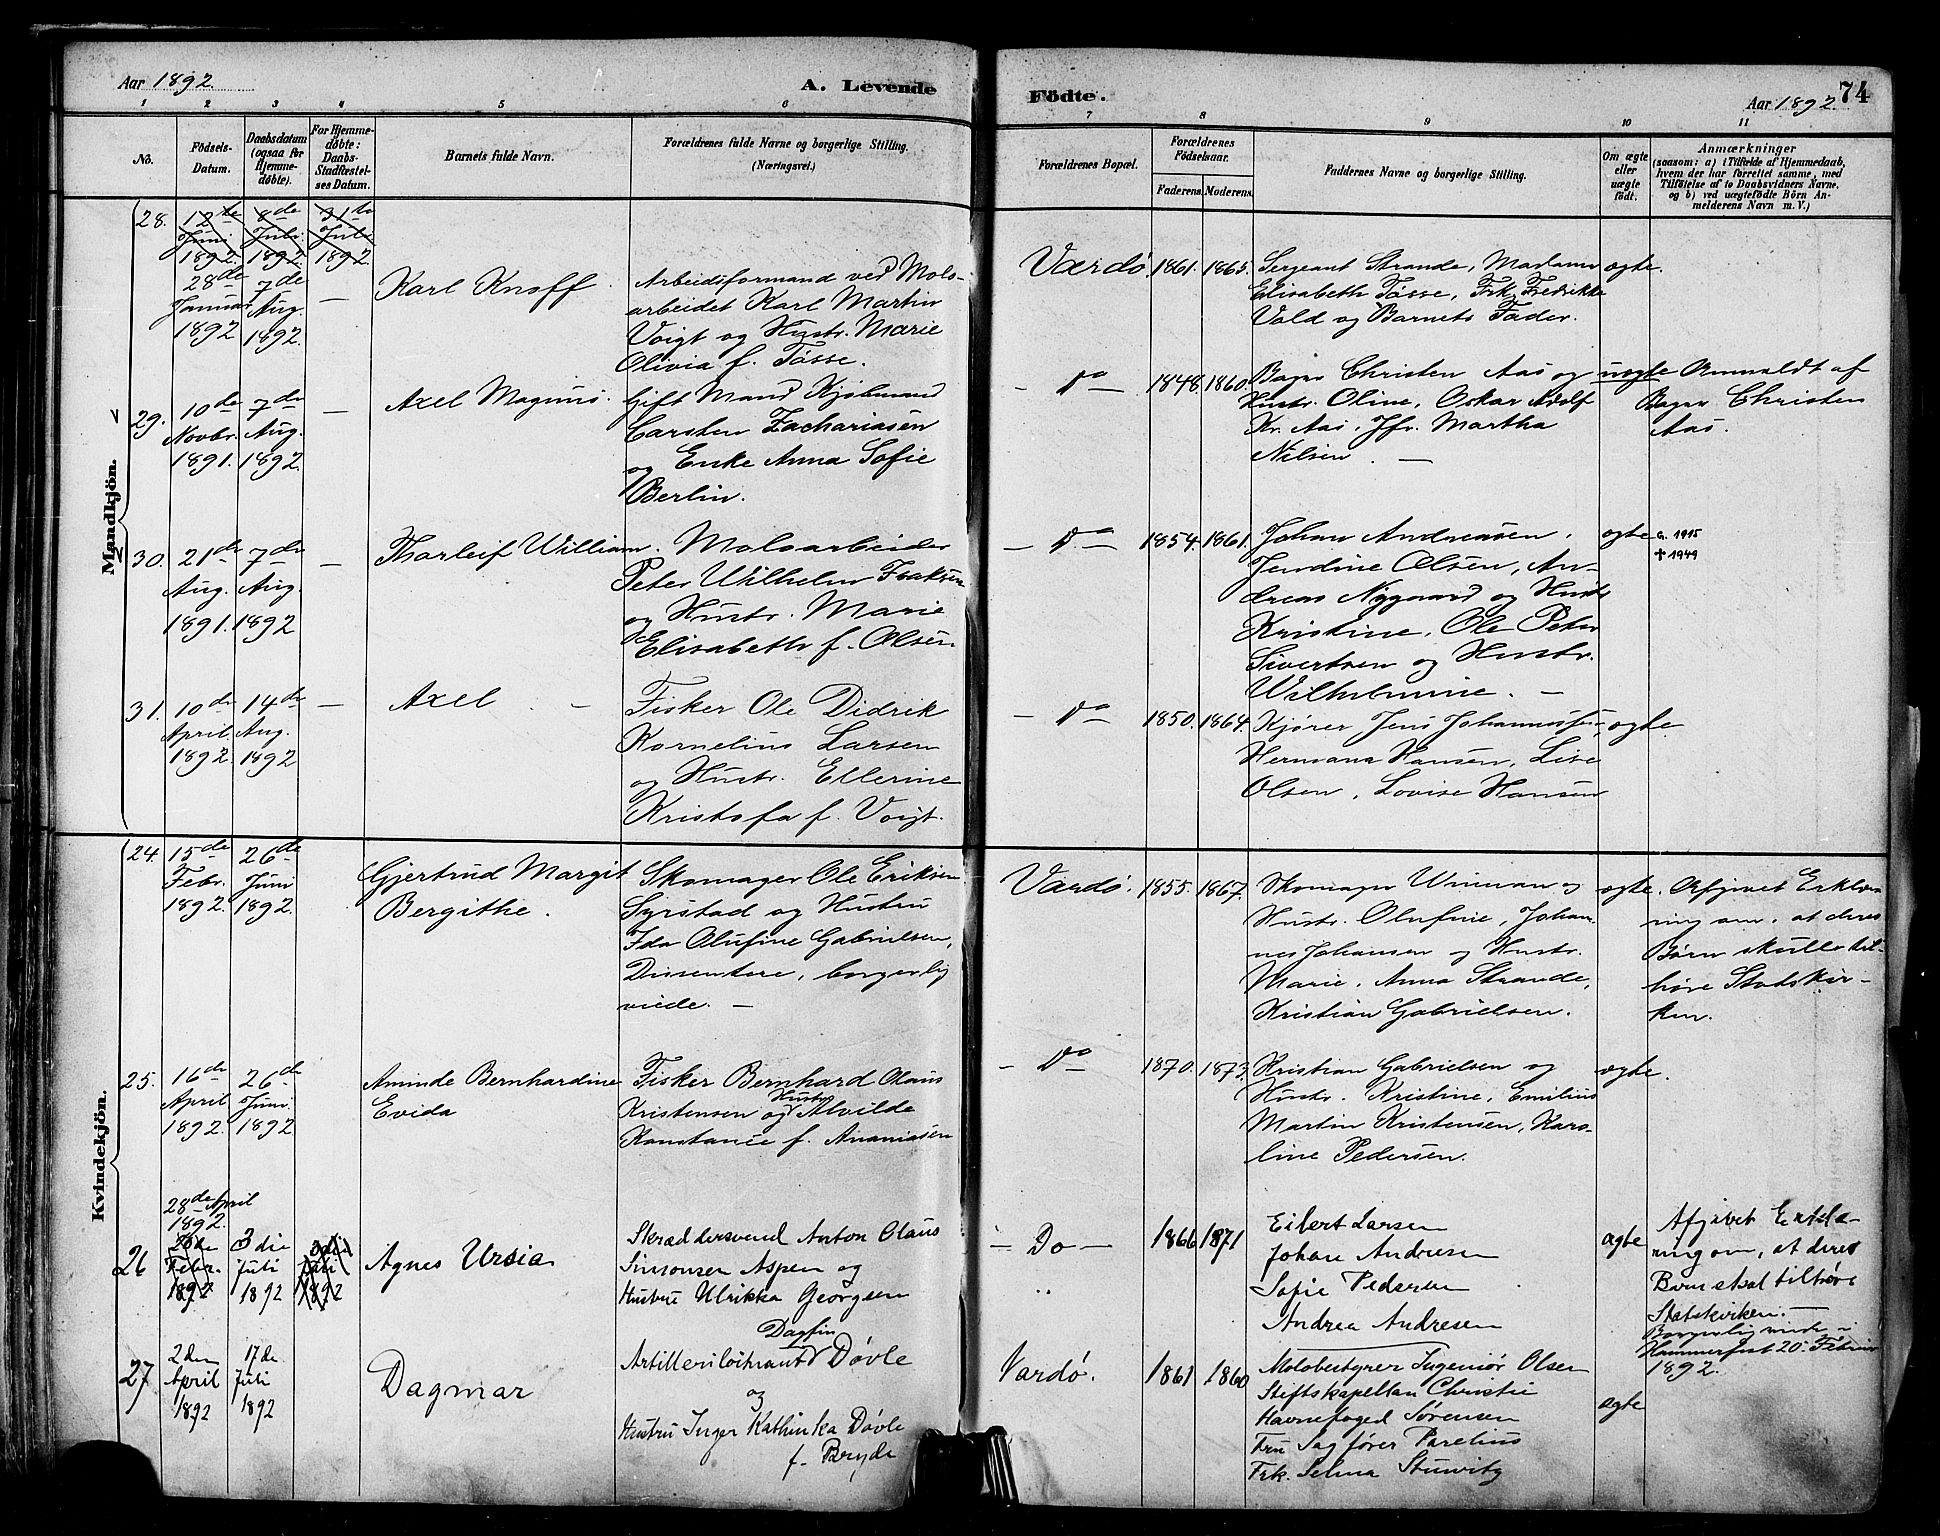 Aar 1892.
A. Levende
Födte.
Aar 1892.
74
1 2 3 4 5 6 7 8 9 10 11
No.
Födsels-
Datum.
Daabsdatum
(ogsaa for
Hjemme-
döbte).
For Hjemme-
döbte:
Daabs-
Stadfæstel-
ses Datum.
Barnets fulde Navn.
Forældrenes fulde Navne og borgerlige Stilling.
(Næringsvei.)
Forældrenes Bopæl.
Forældrenes
Födselsaar.
Faderens. Moderens.
Faddernes Navne og borgerlige Stilling.
Om ægte
eller
uægte
födt.
Anmærkninger
(saasom: a) i Tilfælde af Hjemmedaab,
hvem der har forrettet samme, med
Tilföielse af to Daabsvidners Navne,
og b) ved uægtefödte Börn An-
melderens Navn m. V.)
Mandkjön.
28.
12te
Juni
1892.
8de
Juli
1892.
31te
Juli
1892.
28de
Januar
1892
7de
Aug.
1892.
—
Karl Knoff.
Arbeidsformand ved Molo-
arbeidet Karl Martin
Voigt og Hustr. Marie
Olivia f. Tösse.
Vardö. 1861. 1865.
Sergeant Strande, Madame
Elisabeth Tösse, Frk. Fredrikke
Vold og Barnets Fader.
ægte.
29.
10de
Novbr.
1891.
7de
Aug.
1892.
—
Axel Magnus.
Gift Mand Kjöbmand
Carsten Zachariasen
og Enke Anna Sofie
Berlin.
— Do — 1848. 1860.
Bager Christen Aas og
Hustr. Oline, Oskar Adolf
Kr. Aas, Jfr. Martha
Nilsen. —
uægte
Anmeldt af
Bager Christen
Aas.
30.
21de
Aug.
1891.
7de
Aug.
1892
—
Thorleif William.
Moloarbeider
Peter Wilhelm Isaksen
og Hustr. Marie
Elisabeth f. Olsen
— Do — 1854. 1861.
Johan Andreasen,
Jendine Olsen, An-
dreas Nygaard og Hustr.
Kristine, Ole Peter
Sivertsen og Hustr.
Wilhelmine. —
ægte
G. 1915
† 1949
31.
10de
April
1892.
14de
Aug.
1892
—
Axel —
Fisker Ole Didrik
Kornelius Larsen
og Hustr. Ellerine
Kristofa f. Voigt.
— Do — 1850. 1864.
Kjører Jens Johannessen,
Hermana Hansen, Lise
Olsen, Lovise Hansen
ægte
Kvindekjön.
24.
15de
Febr.
1892.
26de
Juni
1892.
Gjertrud Margit
Bergithe.
Skomager Ole Eriksen
Syrstad og Hustru
Ida Olufine Gabrielsen,
Dissentere, borgerlig
viede. —
Vardö. 1855. 1867.
Skomager Wiman og
Hustr. Olufine, Johan-
nes Johansen og Hustr.
Marie, Anna Strande,
Kristian Gabrielsen.
ægte.
Afgivet Erklæ-
ring om, at deres
Børn skulle til-
høre Statskir-
ken.
25.
16de
April
1892.
26de
Juni
1892
Aminde Bernhardine
Evida
Fisker Bernhard Olaus
Kristensen og Hustr. Alvilde
Konstance f. Ananiasen
— Do — 1870. 1873.
Kristian Gabrielsen og
Hustr. Kristine, Emilius
Martin Kristensen, Karo-
line Pedersen.
ægte.
26
28de April
1892.
Febr.
1892
3die
Juli
1892
3die
Juli
1892
Agnes Ursia
Skræddersvend Anton Olaus
Simonsen Aspen og
Hustru Ulrikka Georgsen
— Do — 1866 1871
Eilert Larsen
Johan Andresen
Sofie Pedersen
Andrea Andresen
ægte
Afgivet Erklæ-
ring om, at deres
Børn skal tilhøre
Statskirken. —
Borgerlig viede i
Hammerfest 20. Februar
1892.
27
2den
April
1892
17de
Juli
1892
Dagmar
Dagfin
Artilleriløitnant Døvle
og
Hustru Inger Kathinka Døvle
f. Bryde
Vardö. 1861 1860
Molobestyrer Ingeniør Olsen
Stiftskapellan Christie
Havnefoged Sørensen
Fru Sagfører Parelius
Frk. Selma Stuwitz
ægte